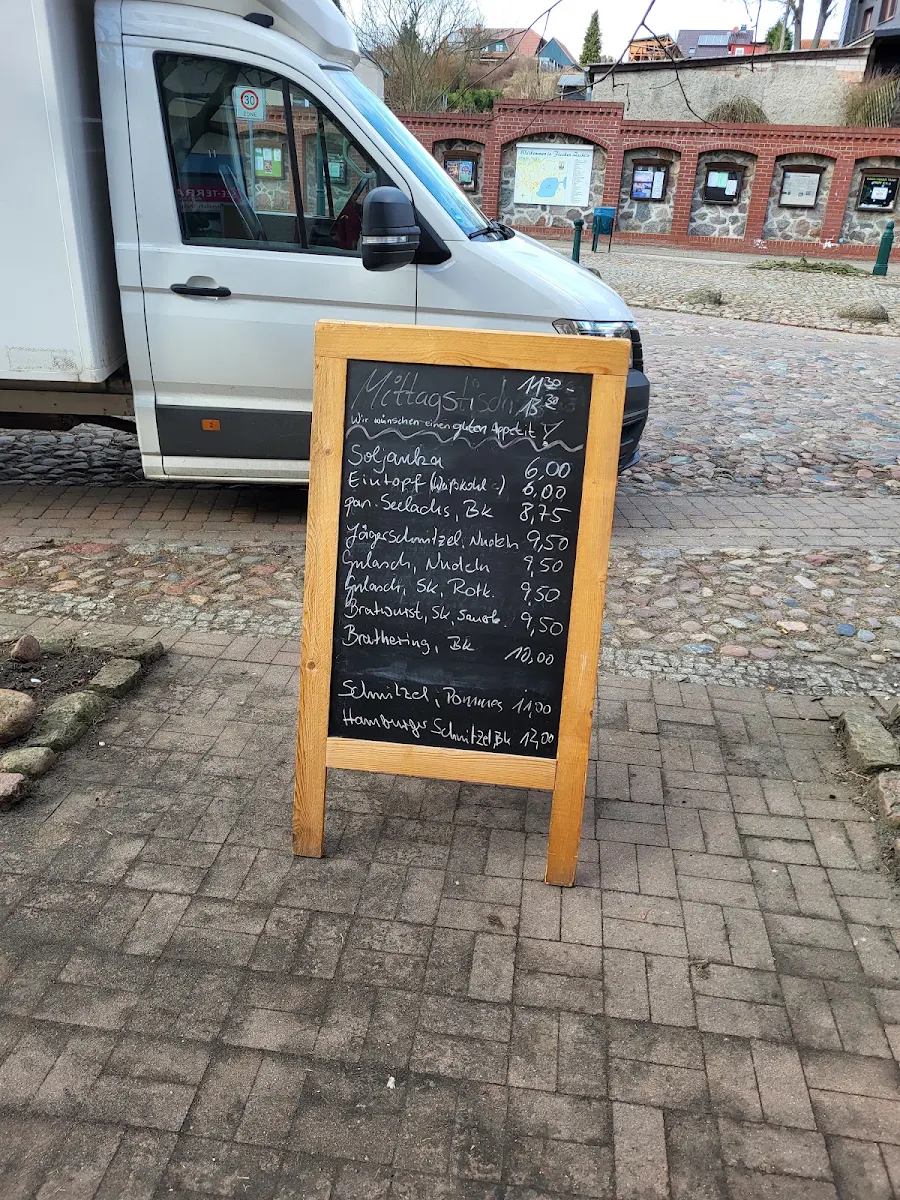 30
ZONE
Willkommen in
Mittagstisch 11 30 -
13 30
Wir wünschen einen guten Appetit!
Soljanka 6,00
Eintopf (Weißkohl-) 6,00
pan. Seelachs, Bk 8,75
Jägerschnitzel, Nudeln 9,50
Gulasch, Nudeln 9,50
Gulasch, Sk, Rotk. 9,50
Bratwurst, Sk, Sauerk. 9,50
Brathering, Bk 10,00
Schnitzel, Pommes 11,00
Hamburger Schnitzel, Bk 12,00